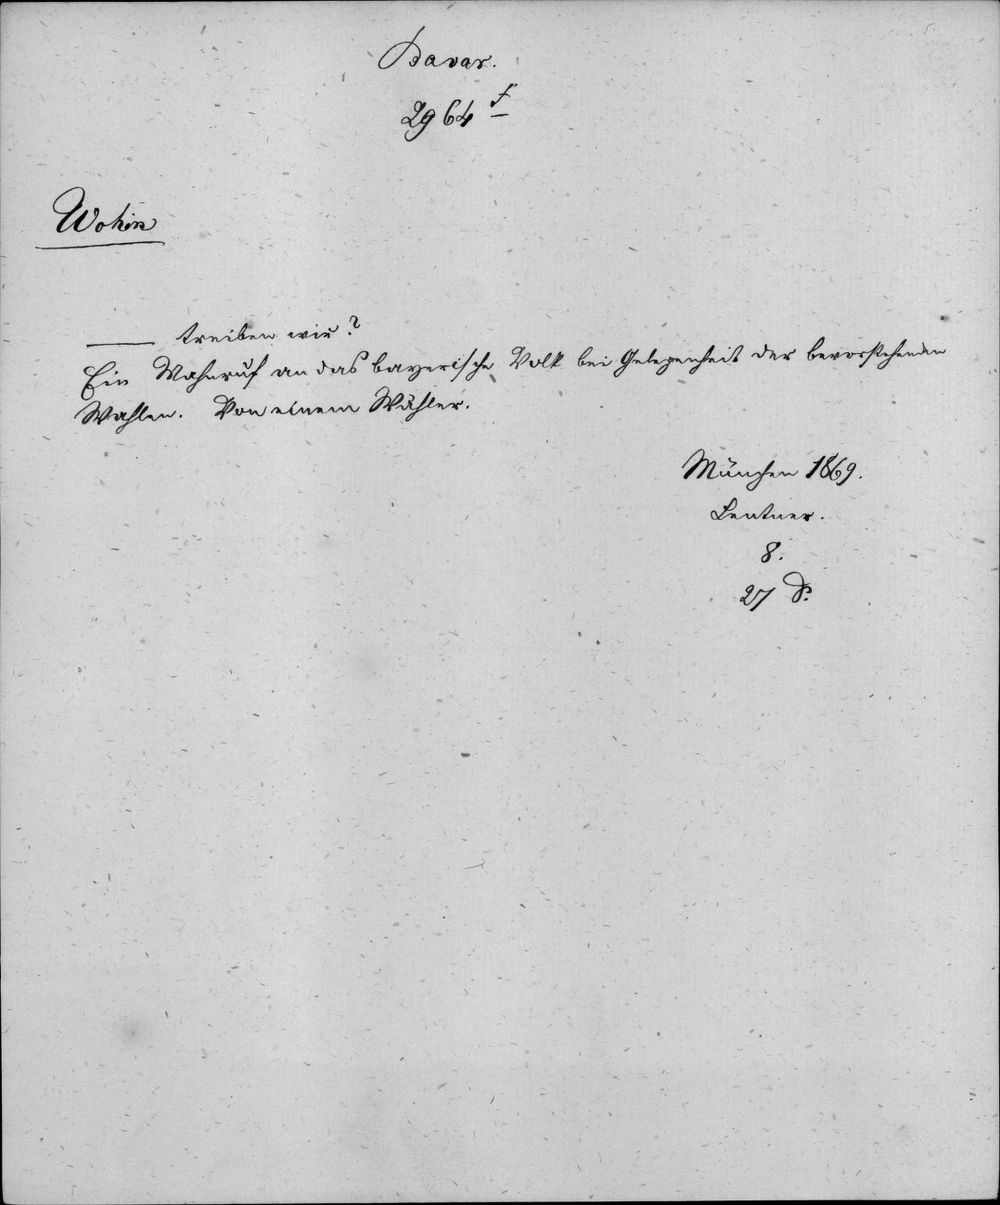 Bavar.
2964 f
Wohin
—— treiben wir?
Ein Mahnruf an das bayerische Volk bei Gelegenheit der bevorstehenden
Wahlen. Von einem Wähler.
München 1869.
Lentner.
8.
27 S.